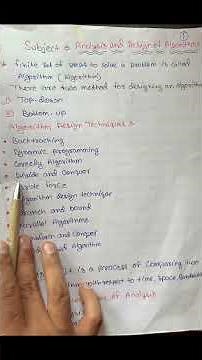 ①
Subject : Analysis and Design of Algorithms
finite set of steps to solve a problem is called
Algorithm (Algorithm)
There are two method for designing an algorithm
1) Top-down
2) Bottom-up
Algorithm Design Techniques :
Backtracking
Dynamic Programming
Greedy Algorithm
Divide and Conquer
force
design
Branch and bound
Parallel Algorithms
and Conquer
of Algorithm
it is a process of Comparing two
with respect to time, Space,
of Analysis